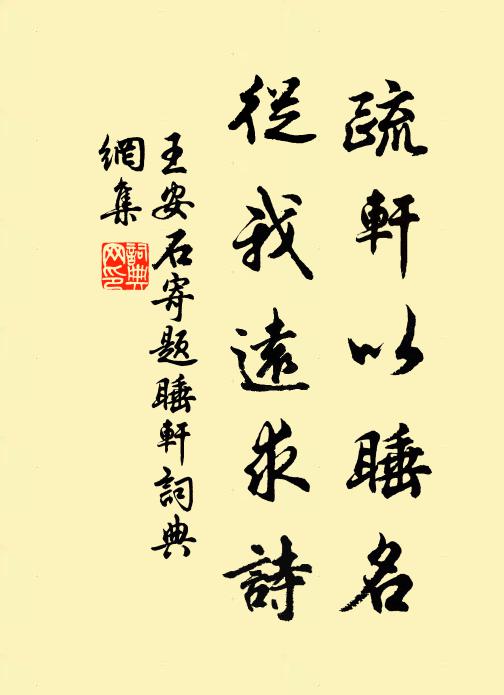 疏軒以睡名
從我遠求詩
王安石寄題睡軒詞典
網集
詞典
网印